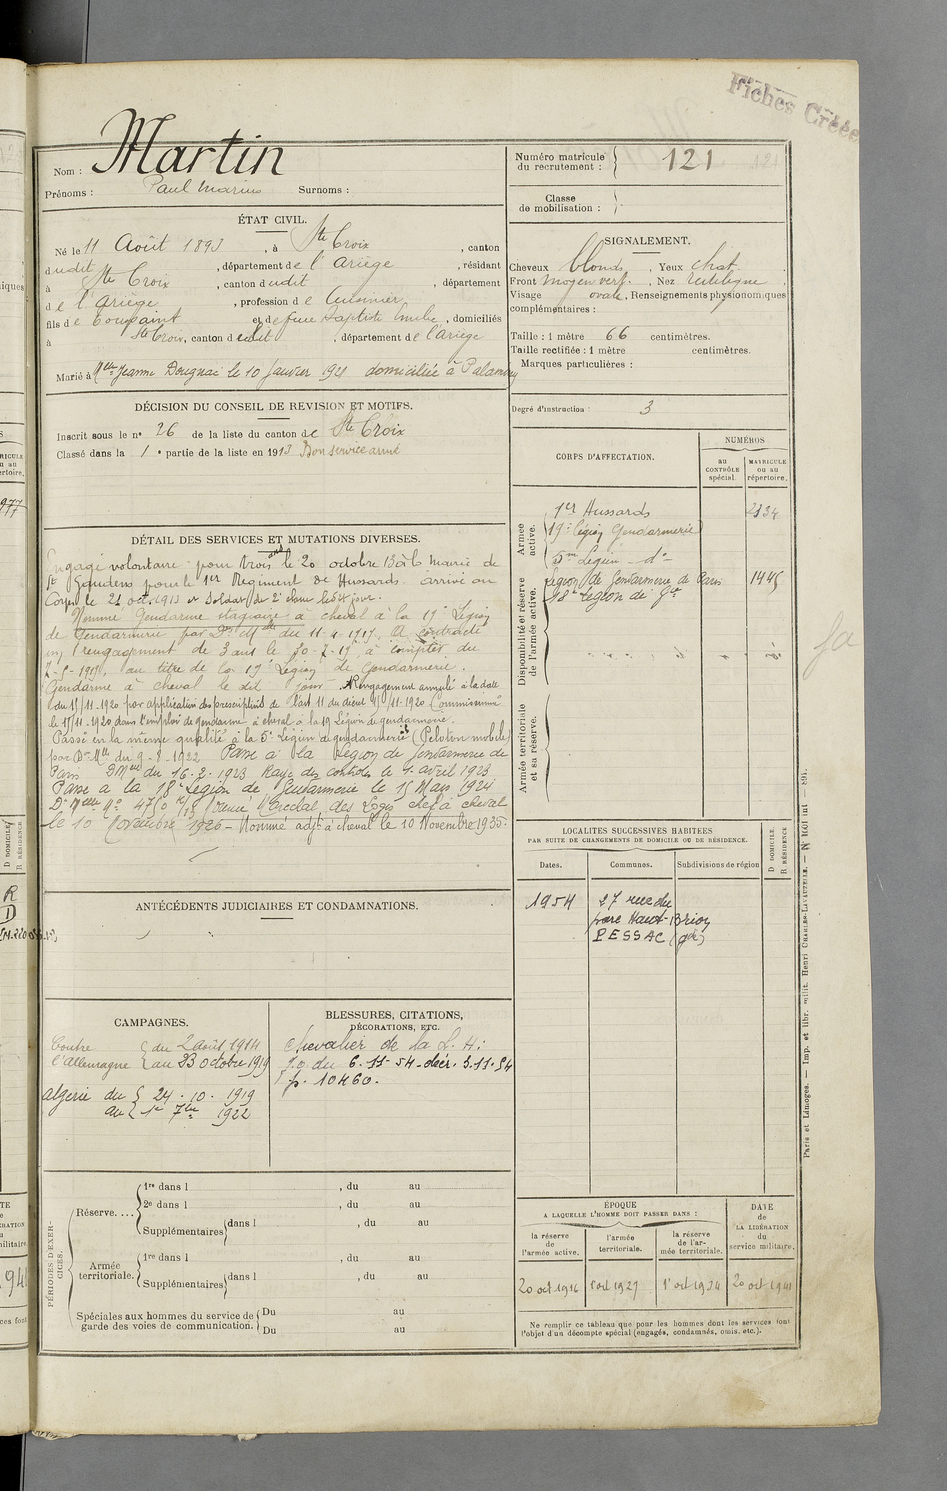 Fiches Créées
Martin
Nom :
Prénoms : Paul Marius Surnoms :
Numéro matricule du recrutement : 121
Classe de mobilisation :
ÉTAT CIVIL.
Né le 11 Août 1893, à Ste Croix, canton
dudit, département de l'Ariège, résidant
à Ste Croix, canton dudit, département
de l'Ariège, profession de Cuisinier
fils de Toussaint et de feue Baptiste, domiciliés
à Ste Croix, canton dudit, département de l'ariège
Marié à Melle Jeanne le 10 Janvier 1921 domiciliée à
SIGNALEMENT.
Cheveux blonds, Yeux chat.
Front moyen vert. Nez rectiligne.
Visage ovale, Renseignements physionomiques
complémentaires :
Taille : 1 mètre 66 centimètres.
Taille rectifiée : 1 mètre centimètres.
Marques particulières :
Degré d'instruction : 3
DÉCISION DU CONSEIL DE REVISION ET MOTIFS.
Inscrit sous le no 26 de la liste du canton de Ste Croix
Classé dans la 1e partie de la liste en 1913 Bon service armé
DÉTAIL DES SERVICES ET MUTATIONS DIVERSES.
Engagé volontaire pour trois ans le 20 octobre 1913 à la Mairie de
St Gaudens pour le 1er Régiment de Hussards. arrivé au
Corps le 21 oct. 1913 et Soldat de 2e classe le dit jour.
Nommé Gendarme stagiaire à cheval à la 19e Légion
de Gendarmerie par Don Melle du 11-4-1919. A contracté
un rengagement de 3 ans le 30-7-19 à compter du
au titre de la 19e Légion de Gendarmerie.
Gendarme à cheval le dit jour. Rengagement annulé à la date
du 15/11-1920 par application des prescriptions de l'art 11 du 11-1920 Commissionné
le 15/11-1920 dans l'emploi de gendarme à cheval à la 19 Légion de gendarmerie.
Passé en la même qualité à la 5e Légion de gendarmerie (Peloton mobile)
par Don Melle du 9-8-1922 Passe à la Légion de Gendarmerie de
Paris DMelle du 16.2.1923 Rayé des contrôles le 1 avril 1923
Passe a la 18e Légion de Gendarmerie le 15 Mars 1924
Nommé Marechal des Logis chef à cheval
le 10 Novembre 1926 - Nommé adjt à cheval le 10 Novembre 1935.
CORPS D'AFFECTATION.
NUMÉROS
au CONTRÔLE spécial.
MATRICULE ou au répertoire.
Armée active.
1er Hussards 2134
19e légion Gendarmerie
5me Légion - do -
Légion de Gendarmerie de Paris 1445
18e Légion de Gie
Disponibilité et réserve de l'armée active.
Armée territoriale et sa réserve.
LOCALITÉS SUCCESSIVES HABITÉES
PAR SUITE DE CHANGEMENTS DE DOMICILE OU DE RÉSIDENCE.
Dates. Communes. Subdivisions de région
D DOMICILE. R RÉSIDENCE
1954 27 rue du
parc Haut-Brion
PESSAC (gde)
ANTÉCÉDENTS JUDICIAIRES ET CONDAMNATIONS.
CAMPAGNES.
Contre l'allemagne
du 2 août 1914
au 23 octobre 1919
algérie du 24.10.1919
au 1er 7bre 1922
BLESSURES, CITATIONS,
DÉCORATIONS, ETC.
Chevalier de la L.H:
J.O du 6.11.54 - décr. 3.11.54
p. 10460.
PÉRIODES D'EXERCICES.
Réserve....
1re dans l , du au
2e dans l , du au
Supplémentaires dans l , du au
Armée territoriale.
1re dans l , du au
Supplémentaires dans l , du au
Spéciales aux hommes du service de garde des voies de communication.
Du au
Du au
ÉPOQUE
A LAQUELLE L'HOMME DOIT PASSER DANS :
la réserve de l'armée active.
l'armée territoriale.
la réserve de l'armée territoriale.
DATE de LA LIBÉRATION du service militaire.
20 oct 1916 1er oct 1927 1er oct 1934 20 oct 1941
Ne remplir ce tableau que pour les hommes dont les services font
l'objet d'un décompte spécial (engagés, condamnés, omis, etc.).
Paris et Limoges. — Imp. et libr. milit. Henri CHARLES-LAVAUZELLE.